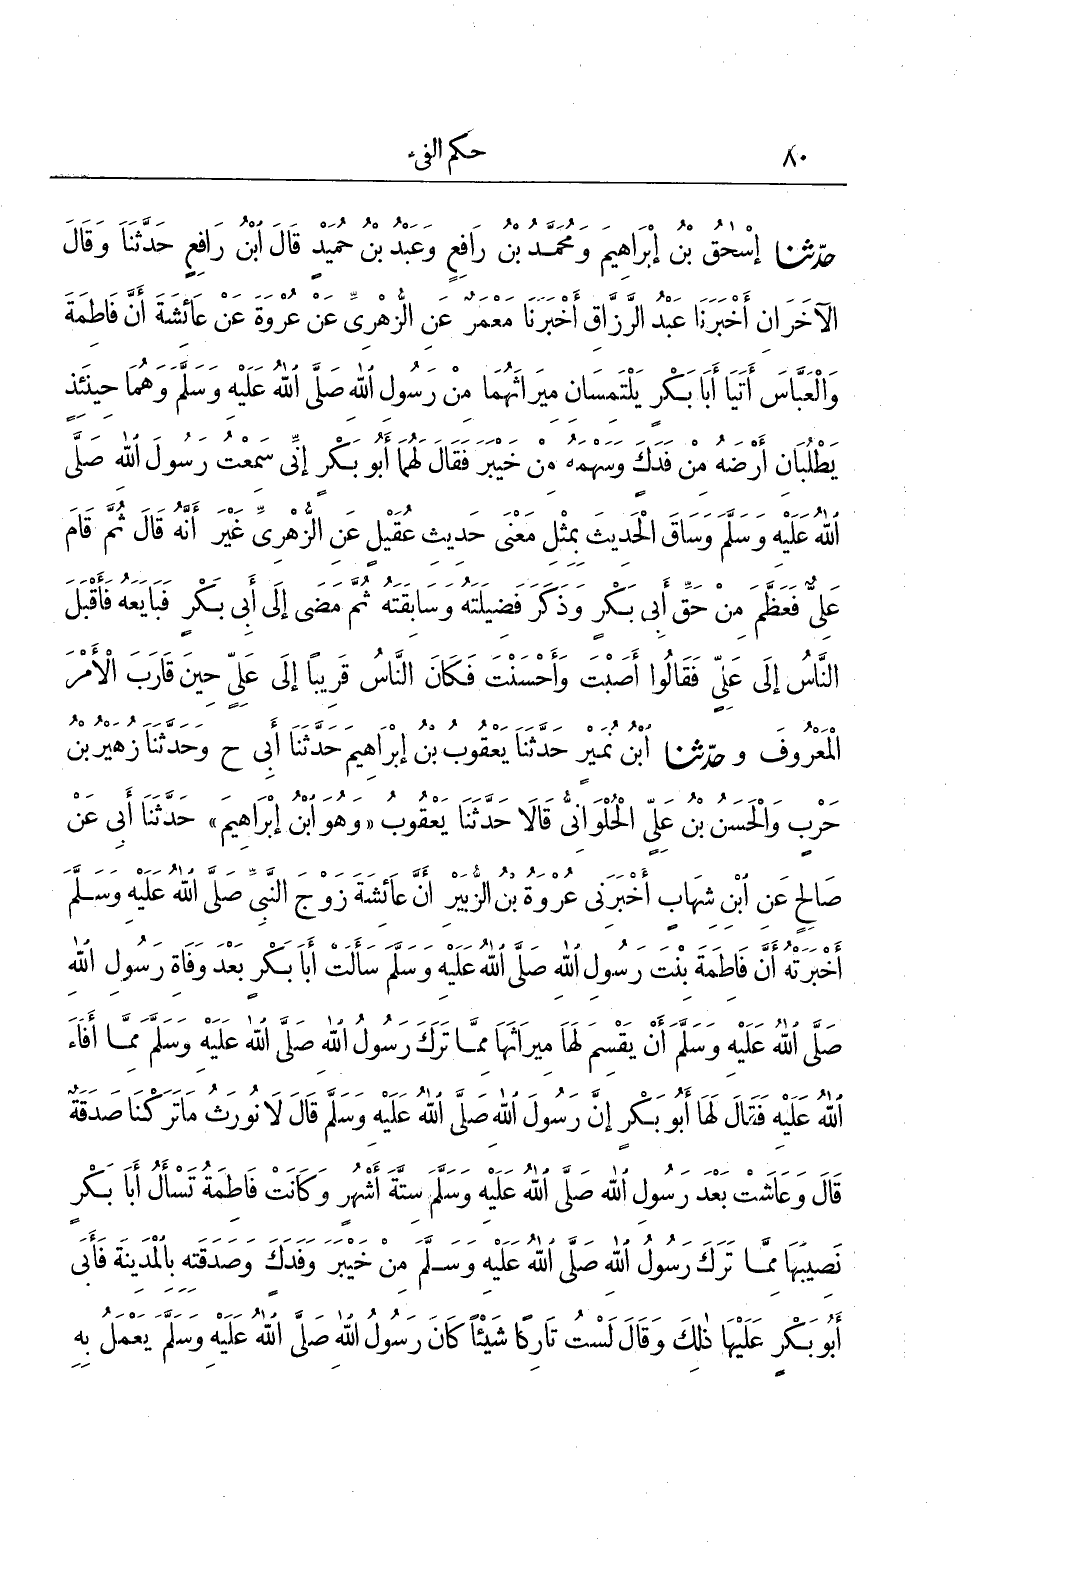 ٨٠ حكم الفىء
حدّثنا إِسْحٰقُ بْنُ إِبْرَاهِيمَ وَمُحَمَّدُ بْنُ رَافِعٍ وَعَبْدُ بْنُ حُمَيْدٍ قَالَ ابْنُ رَافِعٍ حَدَّثَنَا وَقَالَ
الْآخَرَانِ أَخْبَرَنَا عَبْدُ الرَّزَّاقِ أَخْبَرَنَا مَعْمَرٌ عَنِ الزُّهْرِىِّ عَنْ عُرْوَةَ عَنْ عَائِشَةَ أَنَّ فَاطِمَةَ
وَالْعَبَّاسَ أَتَيَا أَبَا بَكْرٍ يَلْتَمِسَانِ مِيرَاثَهُمَا مِنْ رَسُولِ اللهِ صَلَّى اللهُ عَلَيْهِ وَسَلَّمَ وَهُمَا حِينَئِذٍ
يَطْلُبَانِ أَرْضَهُ مِنْ فَدَكَ وَسَهْمَهُ مِنْ خَيْبَرَ فَقَالَ لَهُمَا أَبُو بَكْرٍ إِنِّى سَمِعْتُ رَسُولَ اللهِ صَلَّى
اللهُ عَلَيْهِ وَسَلَّمَ وَسَاقَ الْحَدِيثَ بِمِثْلِ مَعْنَى حَدِيثِ عُقَيْلٍ عَنِ الزُّهْرِىِّ غَيْرَ أَنَّهُ قَالَ ثُمَّ قَامَ
عَلِىٌّ فَعَظَّمَ مِنْ حَقِّ أَبِى بَكْرٍ وَذَكَرَ فَضِيلَتَهُ وَسَابِقَتَهُ ثُمَّ مَضَى إِلَى أَبِى بَكْرٍ فَبَايَعَهُ فَأَقْبَلَ
النَّاسُ إِلَى عَلِىٍّ فَقَالُوا أَصَبْتَ وَأَحْسَنْتَ فَكَانَ النَّاسُ قَرِيبًا إِلَى عَلِىٍّ حِينَ قَارَبَ الْأَمْرَ
الْمَعْرُوفَ و حدّثنا ابْنُ نُمَيْرٍ حَدَّثَنَا يَعْقُوبُ بْنُ إِبْرَاهِيمَ حَدَّثَنَا أَبِى ح وَحَدَّثَنَا زُهَيْرُ بْنُ
حَرْبٍ وَالْحَسَنُ بْنُ عَلِىٍّ الْحُلْوَانِىُّ قَالَا حَدَّثَنَا يَعْقُوبُ «وَهُوَ ابْنُ إِبْرَاهِيمَ» حَدَّثَنَا أَبِى عَنْ
صَالِحٍ عَنِ ابْنِ شِهَابٍ أَخْبَرَنِى عُرْوَةُ بْنُ الزُّبَيْرِ أَنَّ عَائِشَةَ زَوْجَ النَّبِىِّ صَلَّى اللهُ عَلَيْهِ وَسَلَّمَ
أَخْبَرَتْهُ أَنَّ فَاطِمَةَ بِنْتَ رَسُولِ اللهِ صَلَّى اللهُ عَلَيْهِ وَسَلَّمَ سَأَلَتْ أَبَا بَكْرٍ بَعْدَ وَفَاةِ رَسُولِ اللهِ
صَلَّى اللهُ عَلَيْهِ وَسَلَّمَ أَنْ يَقْسِمَ لَهَا مِيرَاثَهَا مِمَّا تَرَكَ رَسُولُ اللهِ صَلَّى اللهُ عَلَيْهِ وَسَلَّمَ مِمَّا أَفَاءَ
اللهُ عَلَيْهِ فَقَالَ لَهَا أَبُو بَكْرٍ إِنَّ رَسُولَ اللهِ صَلَّى اللهُ عَلَيْهِ وَسَلَّمَ قَالَ لَا نُورَثُ مَا تَرَكْنَا صَدَقَةٌ
قَالَ وَعَاشَتْ بَعْدَ رَسُولِ اللهِ صَلَّى اللهُ عَلَيْهِ وَسَلَّمَ سِتَّةَ أَشْهُرٍ وَكَانَتْ فَاطِمَةُ تَسْأَلُ أَبَا بَكْرٍ
نَصِيبَهَا مِمَّا تَرَكَ رَسُولُ اللهِ صَلَّى اللهُ عَلَيْهِ وَسَلَّمَ مِنْ خَيْبَرَ وَفَدَكَ وَصَدَقَتِهِ بِالْمَدِينَةِ فَأَبَى
أَبُو بَكْرٍ عَلَيْهَا ذٰلِكَ وَقَالَ لَسْتُ تَارِكًا شَيْئًا كَانَ رَسُولُ اللهِ صَلَّى اللهُ عَلَيْهِ وَسَلَّمَ يَعْمَلُ بِهِ